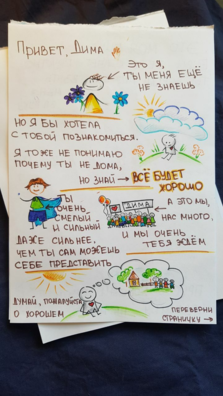 Привет, Дима
Это я,
ты меня ещё
не знаешь
Но я бы хотела
с тобой познакомиться.
Я тоже не понимаю
почему ты не дома,
но знай → всё будет
хорошо
Ты
очень
смелый
и сильный
даже сильнее,
чем ты сам можешь
себе представить
Дима
А это мы,
нас много.
и мы очень
тебя ждём
Думай, пожалуйста,
о хорошем
Переверни
страничку →